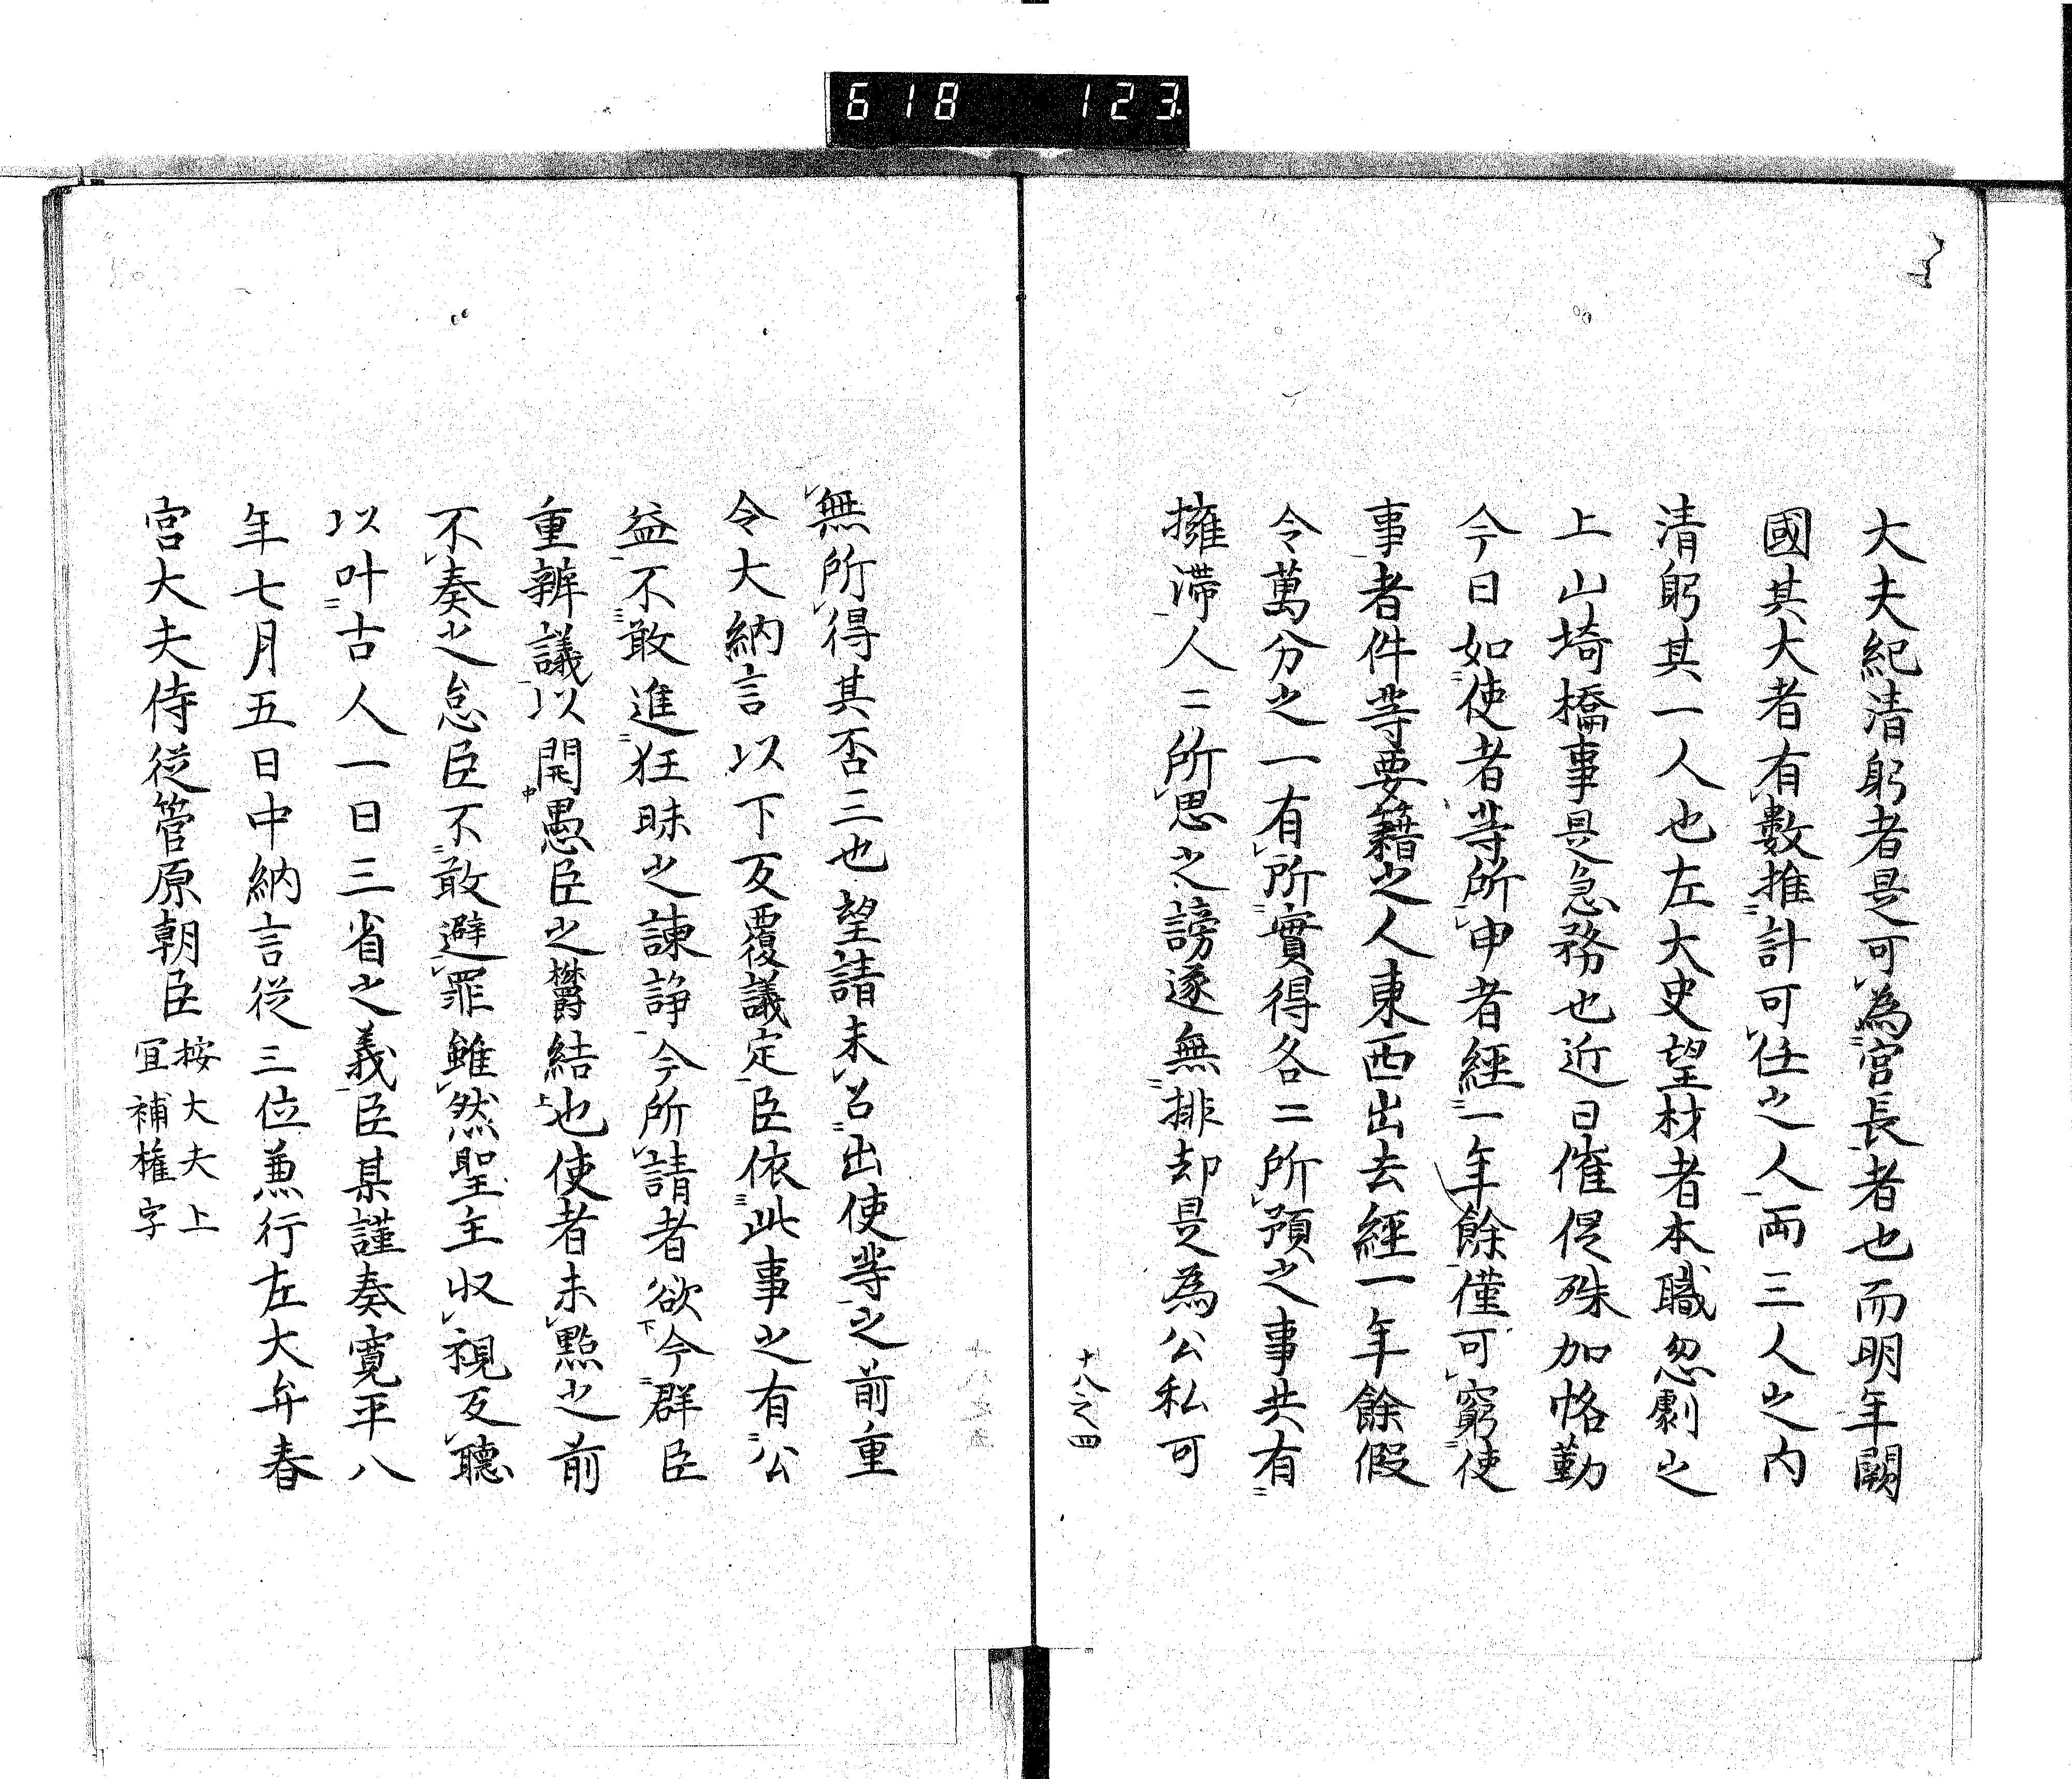 618 123.
大夫紀清躬者是可為宮長者也而明年闕
國其大者有數推計可任之人両三人之内
清躬其一人也左大史望材者本職怱劇之
上山埼橋事是急務也近日催促殊加恪勤
今日如使者等所申者經一年餘僅可窮使
事者件等要籍之人東西出去經一年餘假
令萬分之一有所實得各二所預之事共有
擁滞人二所思之謗遂無排却是為公私可
十八之四
無所得其否三也望請未召出使等之前重
令大納言以下反覆議定臣依此事之有公
益不敢進狂昧之諫諍今所請者欲令群臣
重辨議以開愚臣之欝結也使者未點之前
不奏之怠臣不敢避罪雖然聖主収視反聽
以叶古人一日三省之義臣某謹奏寛平八
年七月五日中納言從三位兼行左大弁春
宮大夫侍從菅原朝臣 按大夫上
冝補権字